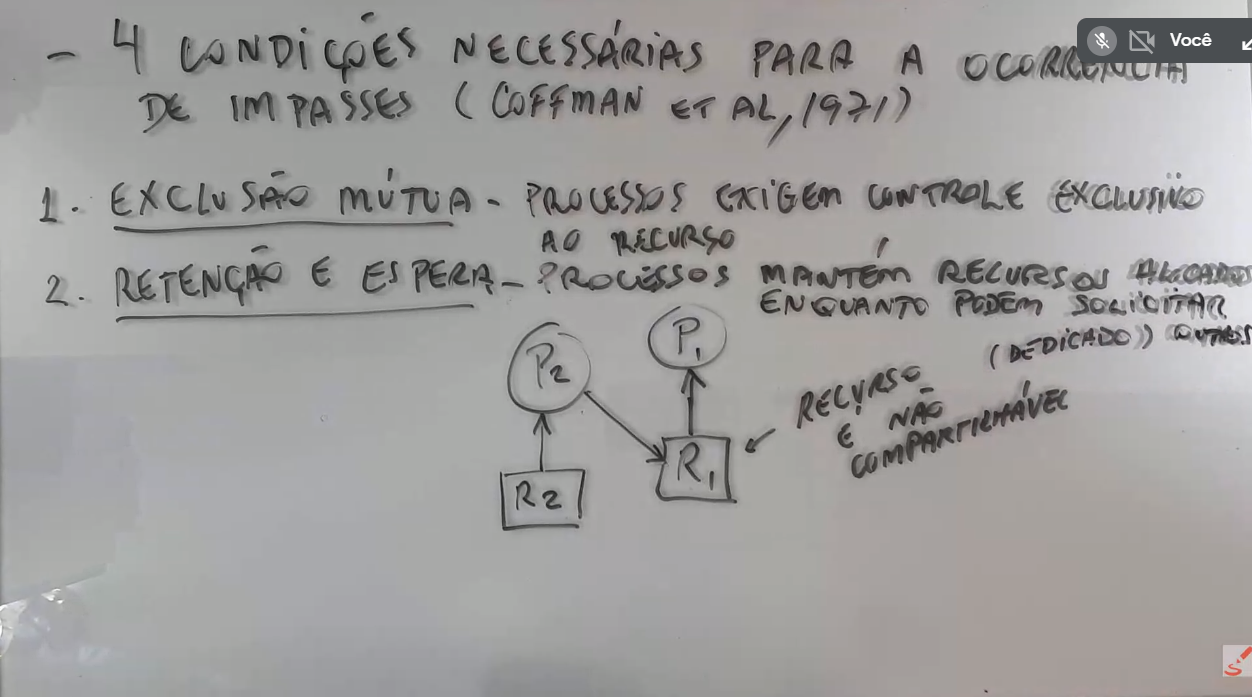 - 4 CONDIÇÕES NECESSÁRIAS PARA A OCORRÊNCIA
DE IMPASSES (COFFMAN ET AL, 1971)
1. EXCLUSÃO MÚTUA - PROCESSOS EXIGEM CONTROLE EXCLUSIVO
AO RECURSO
2. RETENÇÃO E ESPERA - PROCESSOS MANTÉM RECURSOS ALOCADOS
ENQUANTO PODEM SOLICITAR
(DEDICADO)) OUTROS
P2
P1
RECURSO
É NÃO
COMPARTILHÁVEL
R1
R2
Você